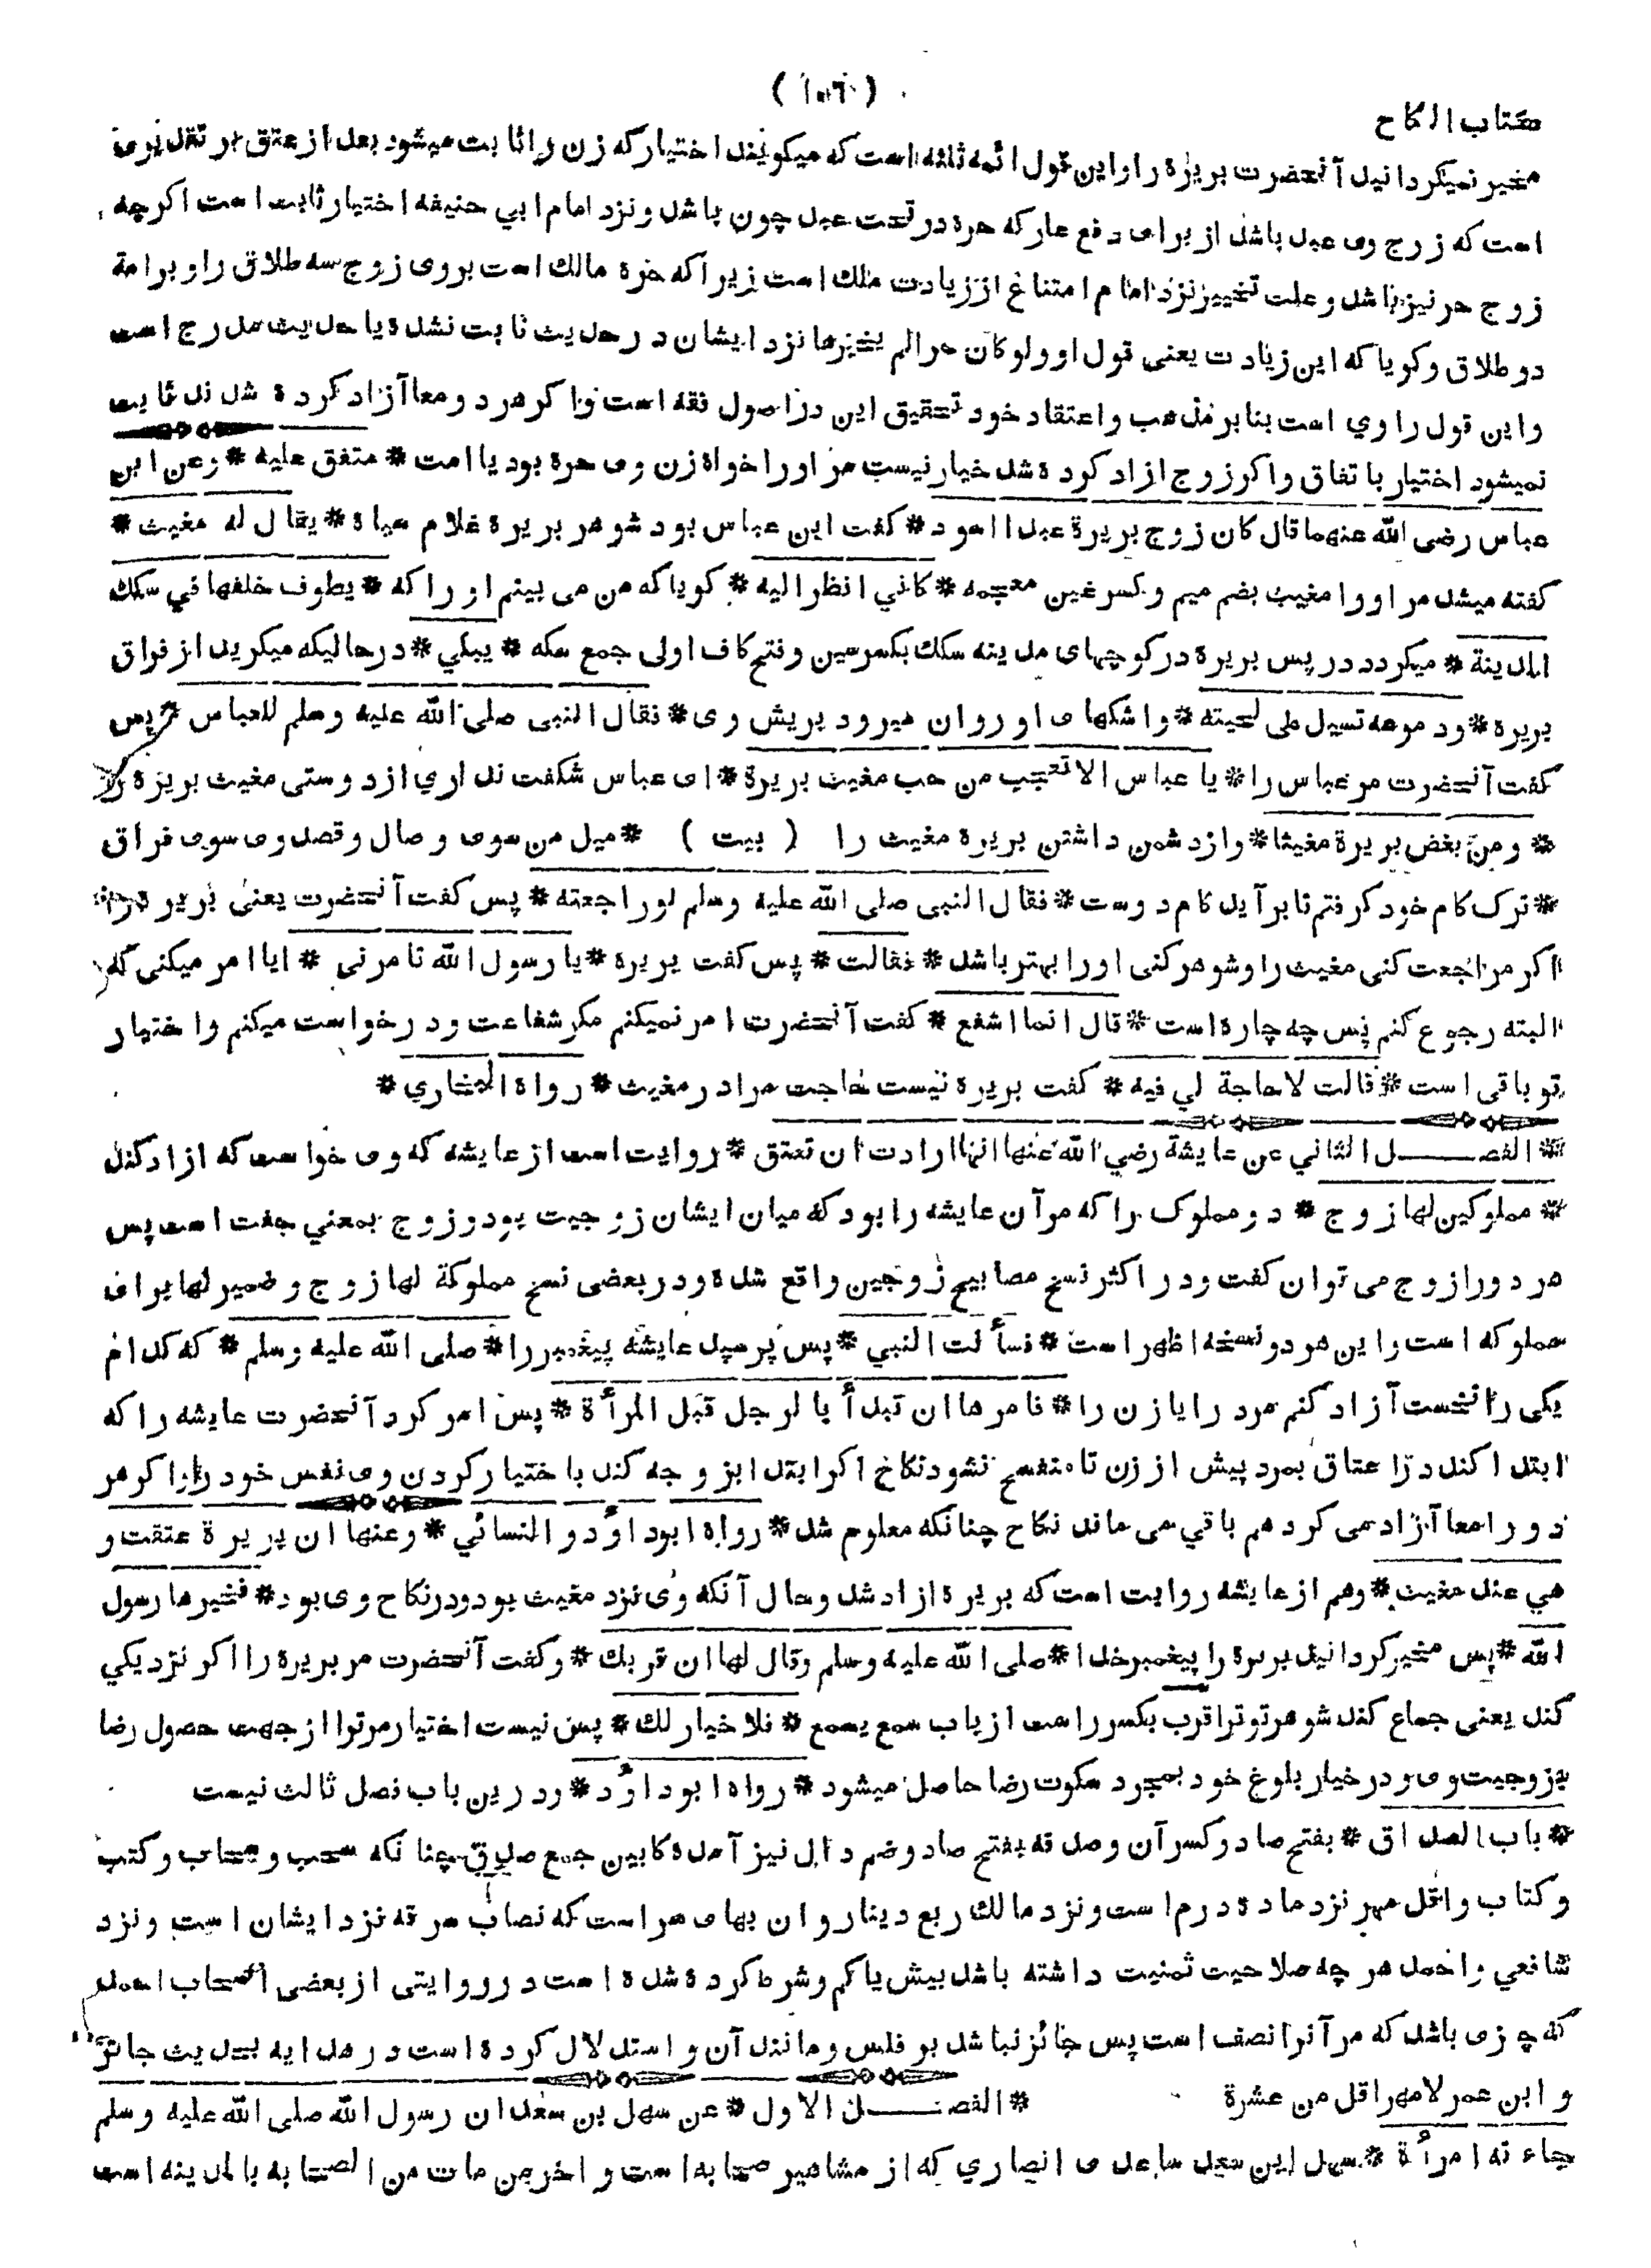 ( ١٥٦ )
كتاب النكاح
مخير نميكردانيد آنحضرت بريره را و اين قول ائمه ثلثه است كه ميكويند اختيار كه زن را ثابت ميشود بعد از عتق بر تقديرى
است كه زوج وى عبد باشد از براى دفع عار كه حره در تحت عبد چون باشد و نزد امام ابي حنيفه اختيار ثابت است اكرچه
زوج حر نيز باشد و علت تخيير نزد امام امتناع از زيادت ملك است زيرا كه حره مالك است بروى زوج سه طلاق را و بر امة
دو طلاق و كويا كه اين زيادت يعنى قول او ولو كان حرا لم يخيرها نزد ايشان در حديث ثابت نشده يا حديث مدرج است
و اين قول راوي است بنا بر مذهب و اعتقاد خود تحقيق اين در اصول فقه است و اكر هر دو معا آزاد كرده شدند ثابت
نميشود اختيار باتفاق و اكر زوج ازاد كرده شد خيار نيست مر او را خواه زن وى حره بود يا امت * متفق عليه * وعن ابن
عباس رضى الله عنهما قال كان زوج بريرة عبدا اسود * كفت ابن عباس بود شوهر بريره غلام سياه * يقال له مغيث *
كفته ميشد مر او را مغيث بضم ميم و كسر غين معجمه * كاني انظر اليه * كويا كه من مى بينم او را كه * يطوف خلفها في سكك
المدينة * ميكردد در پس بريره در كوچهاى مدينه سكك بكسر سين و فتح كاف اولى جمع سكه * يبكي * در حاليكه ميكريد از فراق
بريره * ودموعه تسيل على لحيته * و اشكهاى او روان ميرود بريش وى * فقال النبى صلى الله عليه وسلم للعباس * پس
كفت آنحضرت مر عباس را * يا عباس الا تعجب من حب مغيث بريرة * اى عباس شكفت نداري از دوستى مغيث بريره را
* ومن بغض بريرة مغيثا * و از دشمن داشتن بريره مغيث را ( بيت ) * ميل من سوى وصال و قصد وى سوى فراق
* ترك كام خود كرفتم تا برآيد كام دوست * فقال النبى صلى الله عليه وسلم لو راجعته * پس كفت آنحضرت يعنى بريره را
اكر مراجعت كنى مغيث را و شوهر كنى او را بهتر باشد * فقالت * پس كفت بريره * يا رسول الله تامرنى * ايا امر ميكنى كه
البته رجوع كنم پس چه چاره است * قال انما اشفع * كفت آنحضرت امر نميكنم مكر شفاعت و درخواست ميكنم و اختيار
تو باقى است * قالت لا حاجة لي فيه * كفت بريره نيست حاجت مرا در مغيث * رواه البخاري *
* الفصـــل الثاني عن عايشة رضي الله عنها انها ارادت ان تعتق * روايت است از عايشه كه وى خواست كه ازاد كند
* مملوكين لها زوج * دو مملوك را كه مر آن عايشه را بود كه ميان ايشان زوجيت بود و زوج بمعني جفت است پس
هر دو را زوج مى توان كفت و در اكثر نسخ مصابيح زوجين واقع شده و در بعضى نسخ مملوكة لها زوج و ضمير لها براى
مملوكه است و اين هر دو نسخه اظهر است * فسألت النبي * پس پرسيد عايشه پيغمبر را * صلى الله عليه وسلم * كه كدام
يكى را نخست آزاد كنم مرد را يا زن را * فامرها ان تبدأ بالرجل قبل المرأة * پس امر كرد آنحضرت عايشه را كه
ابتدا كند در اعتاق بمرد پيش از زن تا منفسخ نشود نكاح اكر ابتدا بزوجه كند باختيار كردن وى نفس خود را و اكر هر
دو را معا آزاد مى كرد هم باقي مى ماند نكاح چنانكه معلوم شد * رواه ابو داؤد و النسائي * وعنها ان بريرة عتقت و
هي عند مغيث * و هم از عايشه روايت است كه بريره ازاد شد و حال آنكه وى نزد مغيث بود و در نكاح وى بود * فخيرها رسول
الله * پس مخير كردانيد بريره را پيغمبر خدا * صلى الله عليه وسلم وقال لها ان قربك * و كفت آنحضرت مر بريره را اكر نزديكي
كند يعنى جماع كند شوهر تو ترا قرب بكسر را است از باب سمع يسمع * فلا خيار لك * پس نيست اختيار مر ترا از جهت حصول رضا
بزوجيت وى و در خيار بلوغ خود بمجرد سكوت رضا حاصل ميشود * رواه ابو داؤد * و درين باب فصل ثالث نيست
* باب الصداق * بفتح صاد و كسر آن و صدقه بفتح صاد و ضم دال نيز آمده كابين جمع صدق چنانكه سحب و سحاب و كتب
و كتاب و اقل مهر نزد ما ده درم است و نزد مالك ربع دينار و ان بهاى هر است كه نصاب سرقه نزد ايشان است و نزد
شافعي و احمد هر چه صلاحيت ثمنيت داشته باشد بيش يا كم و شرط كرده شده است در روايتى از بعضى اصحاب احمد
كه چيزى باشد كه مر آنرا نصف است پس جائز نباشد بر فلس و مانند آن و استدلال كرده است در هدايه بحديث جابر
و ابن عمر لا مهر اقل من عشرة * الفصـــل الاول * عن سهل بن سعد ان رسول الله صلى الله عليه وسلم
جاءته امرأة * سهل ابن سعد ساعدى انصاري كه از مشاهير صحابه است و اخر من مات من الصحابه بالمدينه است